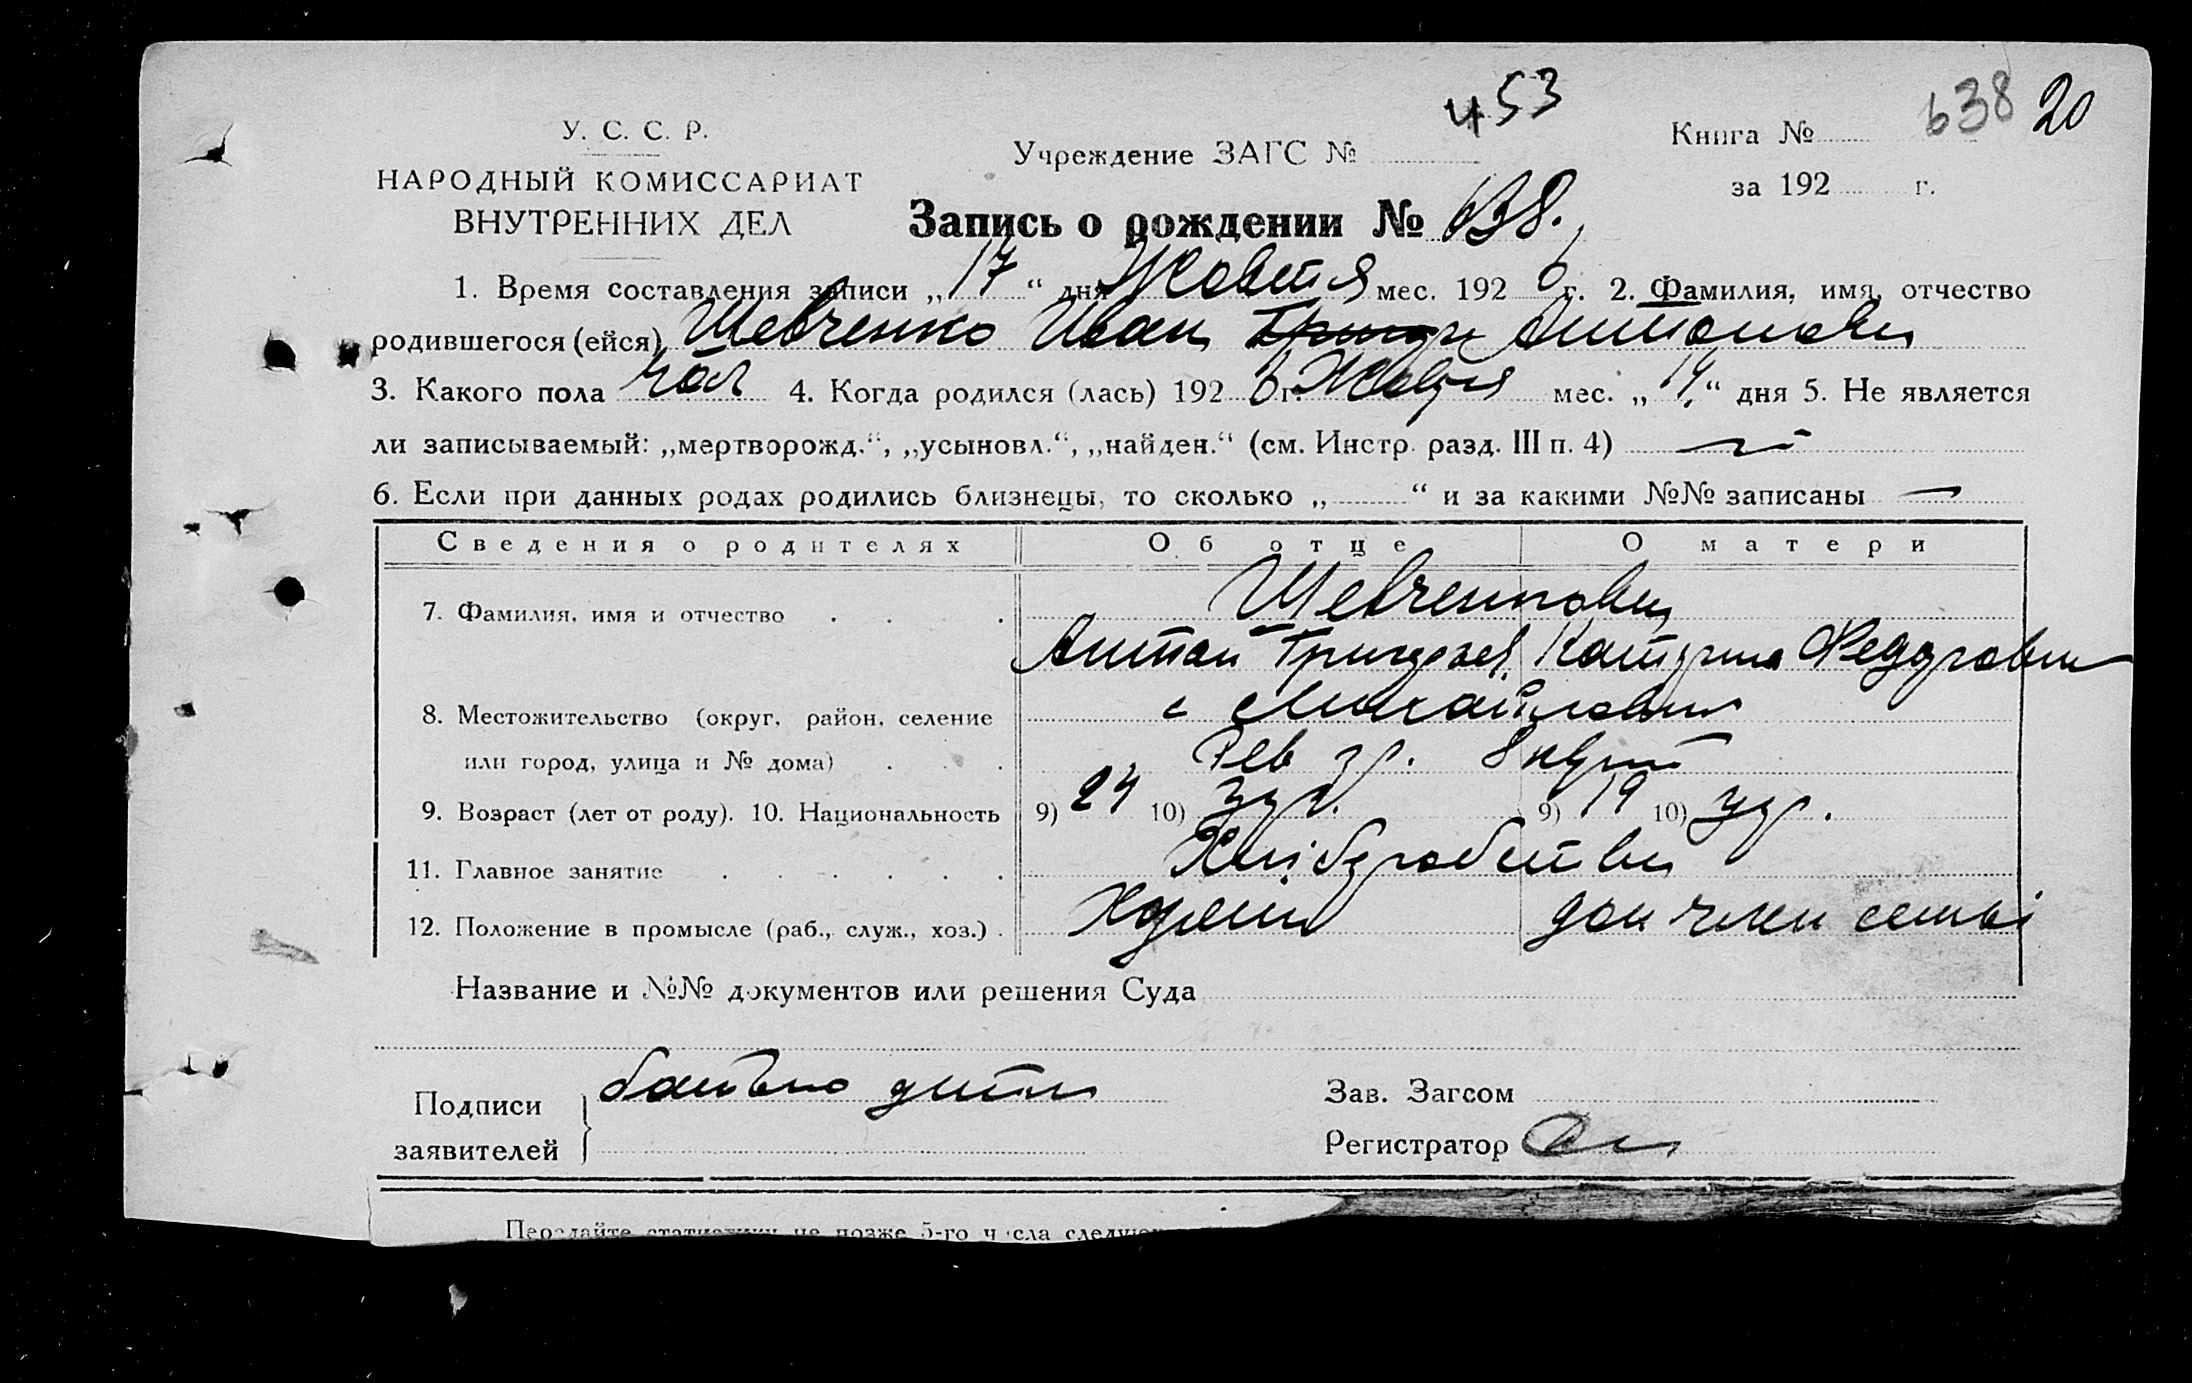 453
638 20
У. С. С. Р.
НАРОДНЫЙ КОМИССАРИАТ
ВНУТРЕННИХ ДЕЛ
Учреждение ЗАГС №
Книга №
за 192 г.
Запись о рождении № 638.
1. Время составления записи „17“ дня Жовтня мес. 1926 г. 2. Фамилия, имя, отчество
родившегося (ейся) Шевченко Иван Антонович
3. Какого пола чол 4. Когда родился (лась) 1926 г. Жовтня мес. „14“ дня 5. Не является
ли записываемый: „мертворожд.“, „усыновл.“, „найден.“ (см. Инстр. разд. III п. 4) —
6. Если при данных родах родились близнецы, то сколько „ “ и за какими №№ записаны —
Сведения о родителях Об отце О матери
7. Фамилия, имя и отчество Шевченкови
Антон Григоров Катерина Федоровна
8. Местожительство (округ, район, селение с Михайловка
или город, улица и № дома)
9. Возраст (лет от роду). 10. Национальность 9) 24 10) укр. 9) 19 10) укр.
11. Главное занятие Хліборобство
12. Положение в промысле (раб., служ., хоз.) член семьі
Название и №№ документов или решения Суда
Подписи заявителей батько дитини
Зав. Загсом
Регистратор
Передайте статистику не позже 5-го числа